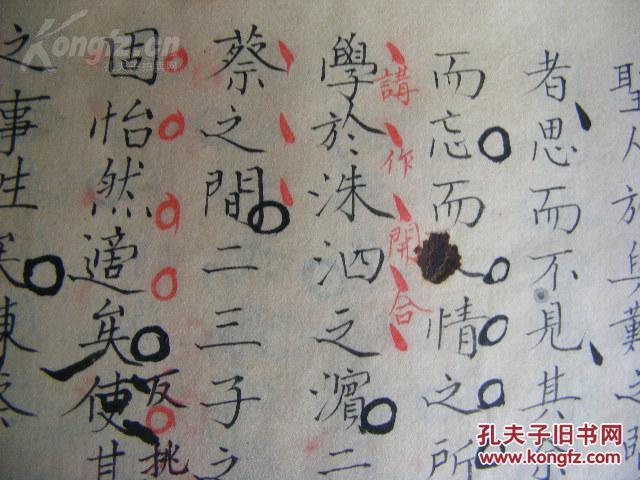 聖人於與難之師
者思而不見其
而忘而情之所
講作開合
學於洙泗之濱二
蔡之間二三子之
固怡然適矣使其
反挑
之事生矣陳蔡
Kongfz.com
孔夫子旧书网
www.kongfz.com